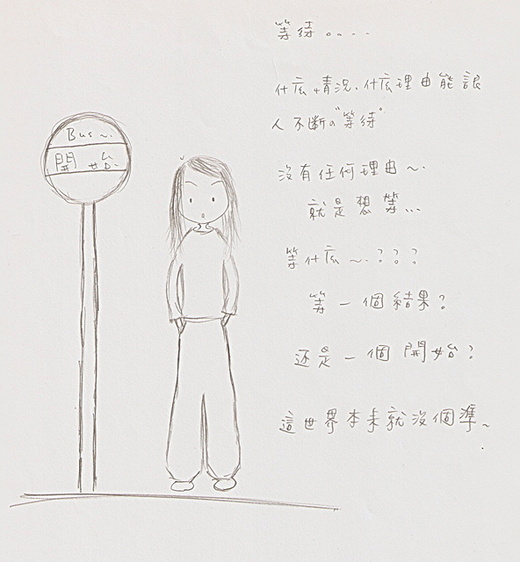 Bus~.
開始
等待....
什広情況.什広理由能讓
人不断の"等待"
沒有任何理由~.
就是想等...
等什広~.???
等一個結果?
还是一個開始?
這世界本來就沒個準~.